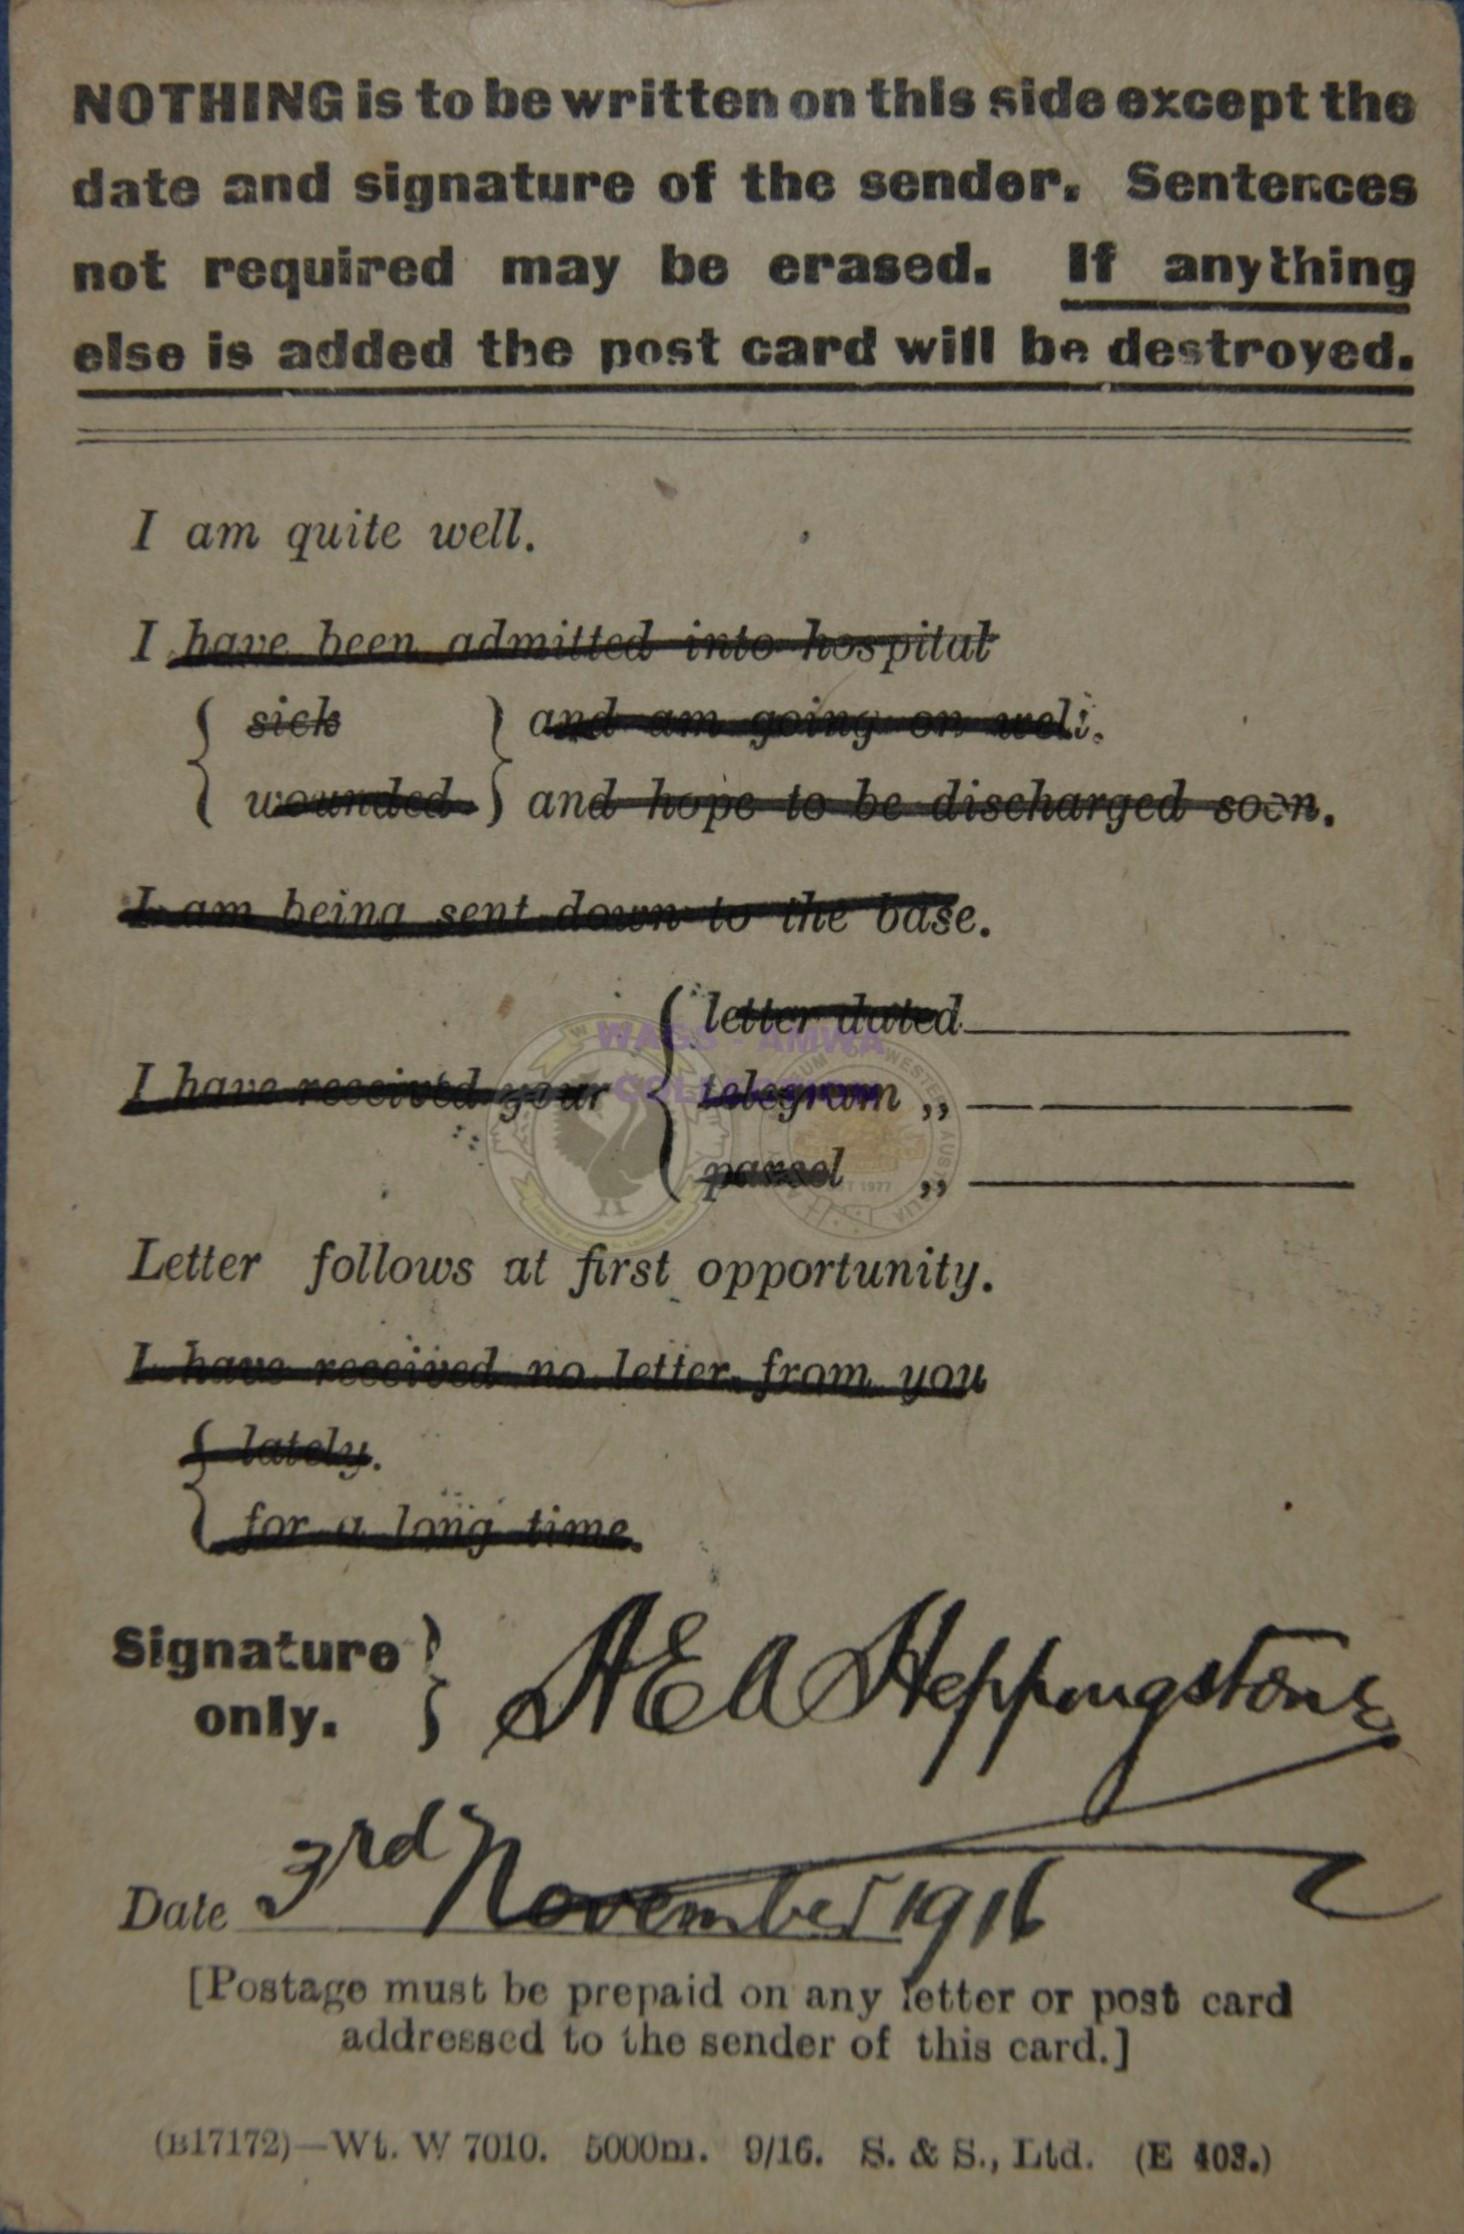 NOTHING is to be written on this side except the
date and signature of the sender. Sentences
not required may be erased. If anything
else is added the post card will be destroyed.
I am quite well.
I have been admitted into hospital
{ sick } and am going on well.
{ wounded } and hope to be discharged soon.
I am being sent down to the base.
I have received your { letter dated
telegram „
parcel „
Letter follows at first opportunity.
I have received no letter from you
{ lately.
for a long time.
Signature only. } A E A Heppingstone
Date 3rd November 1916
[Postage must be prepaid on any letter or post card
addressed to the sender of this card.]
(B17172)—Wt. W 7010. 5000m. 9/16. S. & S., Ltd. (E 403.)
WAGS - AMWA
COLLECTION